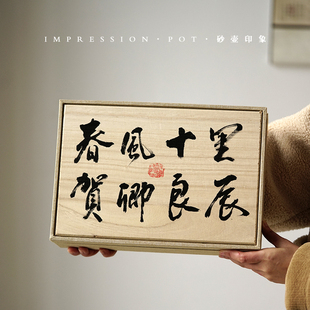 IMPRESSION · POT · 砂壶印象
春風十里
賀卿良辰